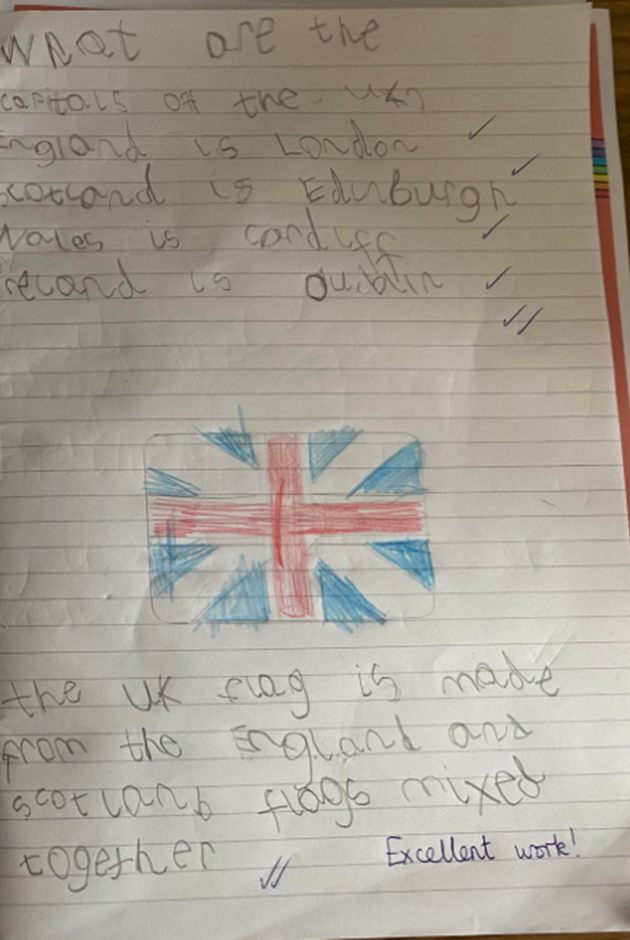 What are the
capitals of the UK?
England is London
Scotland is Edinburgh
Wales is cardiff
Ireland is Dublin
the UK flag is made
from the England and
scotland flags mixed
together
Excellent work!